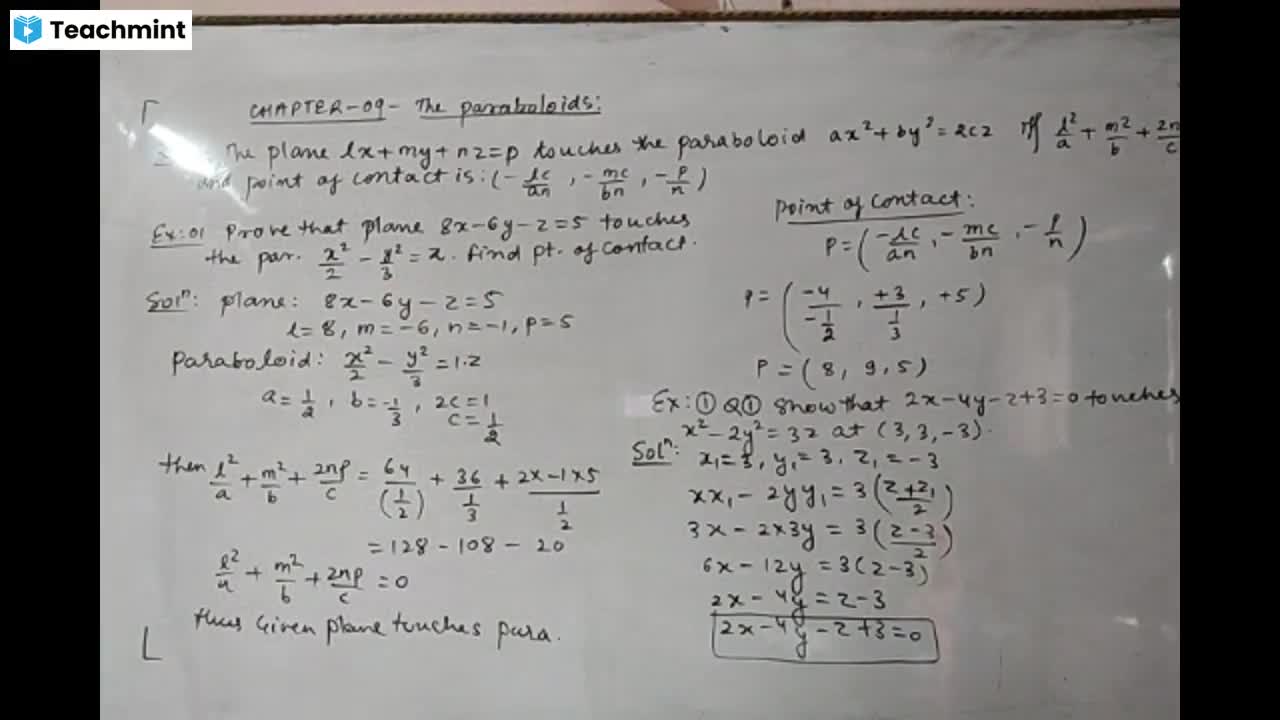 Teachmint
CHAPTER-09- The paraboloids:
The plane lx+my+nz=p touches the paraboloid ax²+by²=2cz iff l²/a + m²/b + 2n/c
and point of contact is: (-lc/an, -mc/bn, -p/n)
Ex:01 Prove that plane 8x-6y-z=5 touches
the par. x²/2 - y²/3 = z. find pt. of contact.
Solⁿ: plane: 8x-6y-z=5
l=8, m=-6, n=-1, p=5
Paraboloid: x²/2 - y²/3 = 1.z
a=1/2, b=-1/3, 2c=1
c=1/2
then l²/a + m²/b + 2np/c = 64/(1/2) + 36/(1/3) + 2x-1x5/(1/2)
= 128-108-20
l²/a + m²/b + 2np/c = 0
thus Given plane touches para.
Point of contact:
P=(-lc/an, -mc/bn, -p/n)
P=(-4/(-1/2), +3/(1/3), +5)
P=(8, 9, 5)
Ex:① Q① Show that 2x-4y-z+3=0 touches
x²-2y²=3z at (3,3,-3).
Solⁿ: x₁=3, y₁=3, z₁=-3
xx₁-2yy₁=3((z+z₁)/2)
3x-2x3y=3((z-3)/2)
6x-12y=3(z-3)
2x-4y=z-3
2x-4y-z+3=0